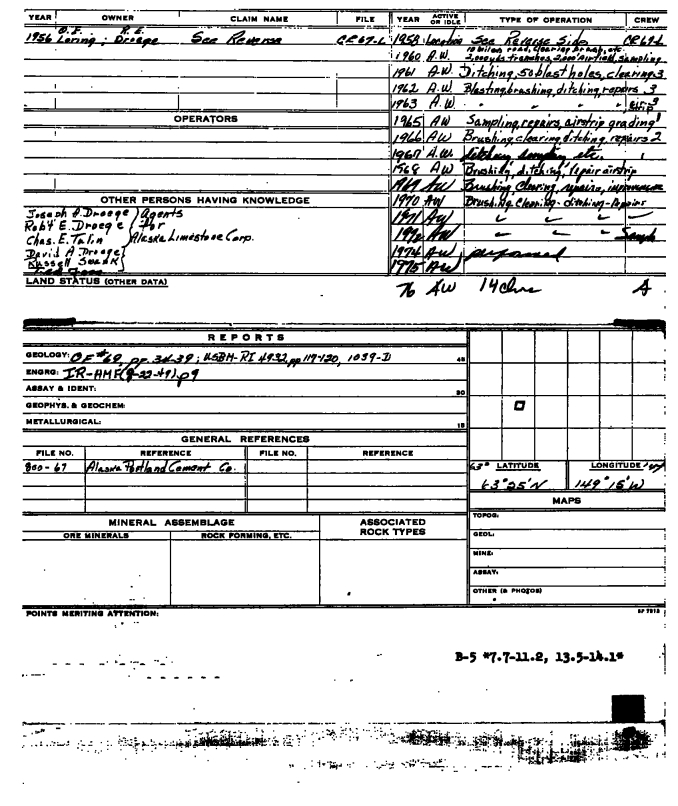 YEAR OWNER CLAIM NAME FILE YEAR ACTIVE OR IDLE TYPE OF OPERATION CREW
O.F. R.E.
1956 Loring; Droege See Reverse CR67-L 1958 Location See Reverse Side CR67-L
1960 A.W. 10 miles road, clearing brush, etc. 2,000 yds trenches, 2,000' airfield, sampling
1961 A.W. Ditching, 50 blast holes, clearing 3
1962 A.W. Blasting, brushing, ditching, repairs 3
1963 A.W. " " " " 3
OPERATORS
1965 AW Sampling, repairs, airstrip grading 1
1966 AW Brushing, clearing, ditching, repairs 2
1967 A.W. ditching sampling etc.
1968 AW Brushing, ditching, repair airstrip
1969 AW Brushing, Clearing, repairs, improvements
1970 AW Brushing, Clearing - ditching - Repairs
1971 AW " " "
1972 AW " " Sample
1974 AW performed
1975 AW
76 AW 14 clms A
OTHER PERSONS HAVING KNOWLEDGE
Joseph A. Droege } Agents
Robt E. Droege } for
Chas. E. Talin } Alaska Limestone Corp.
David A Droege
Russell Swank
LAND STATUS (OTHER DATA)
REPORTS
GEOLOGY: OF #69, pp. 34-39; USBM-RI 4932, pp 119-120, 1039-D 45
ENGRG: IR-AMF(9-22-49) p9
ASSAY & IDENT: 30
GEOPHYS. & GEOCHEM:
METALLURGICAL: 15
GENERAL REFERENCES
FILE NO. REFERENCE FILE NO. REFERENCE
800-67 Alaska Portland Cement Co.
63° LATITUDE LONGITUDE
63°25'N 149°15'W
MAPS
TOPOG:
GEOL:
MINE:
ASSAY:
OTHER (& PHOTOS)
MINERAL ASSEMBLAGE
ORE MINERALS ROCK FORMING, ETC.
ASSOCIATED ROCK TYPES
POINTS MERITING ATTENTION:
B-5 *7.7-11.2, 13.5-14.1*